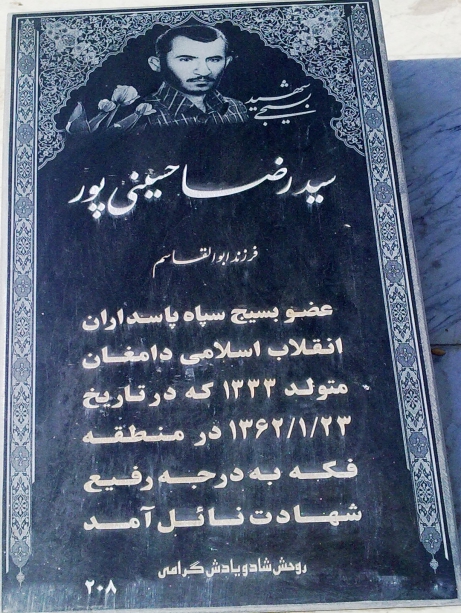 شهید
بسیجی
سید رضا حسینی پور
فرزند ابوالقاسم
عضو بسیج سپاه پاسداران
انقلاب اسلامی دامغان
متولد ۱۳۳۳ که در تاریخ
۱۳۶۲/۱/۲۳ در منطقه
فکه به درجه رفیع
شهادت نائل آمد
روحش شاد و یادش گرامی
۲۰۸